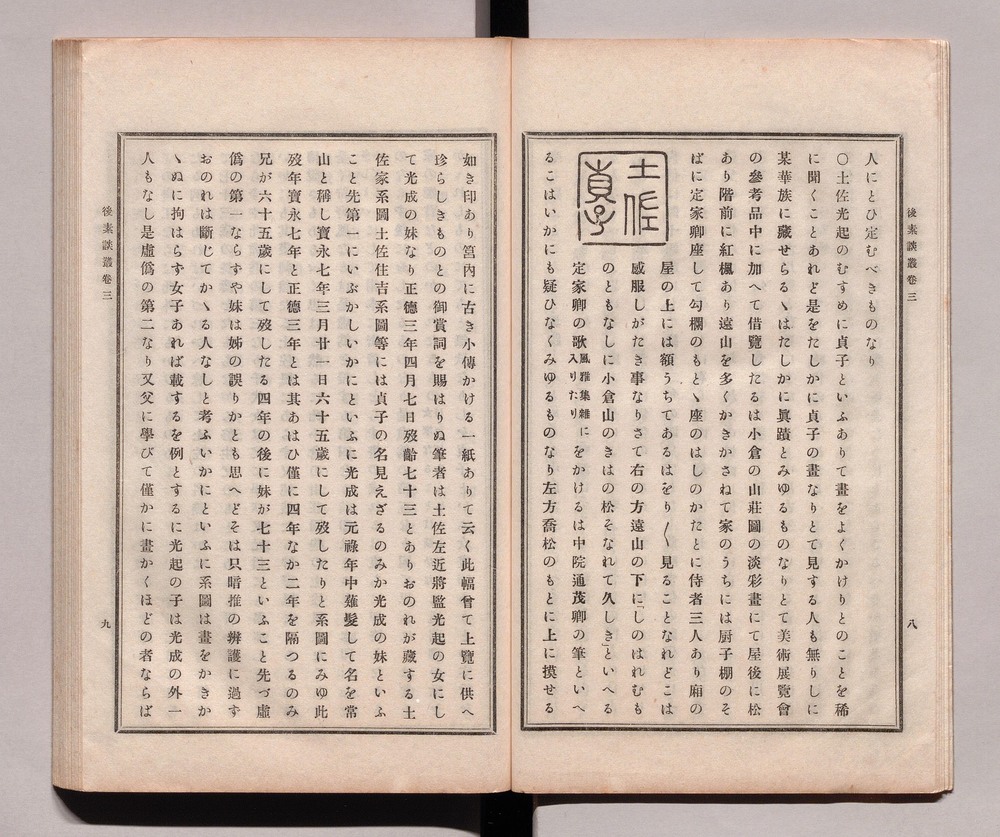 後素談叢卷三
八
人にとひ定むべきものなり
〇土佐光起のむすめに貞子といふありて畫をよくかけりとのことを稀
に聞くことあれど是をたしかに貞子の畫なりとて見する人も無りしに
某華族に藏せらるゝはたしかに眞蹟とみゆるものなりとて美術展覽會
の參考品中に加へて借覽したるは小倉の山莊圖の淡彩畫にて屋後に松
あり階前に紅楓あり遠山を多くかきかさねて家のうちには厨子棚のそ
ばに定家卿座して勾欄のもとゝ座のはしのかたとに侍者三人あり廂の
屋の上には額うちてあるはをり〳〵見ることなれどこは
感服しがたき事なりさて右の方遠山の下に「しのはれむも
のともなしに小倉山のきはの松そなれて久しき」といへる
定家卿の歌風雅集雜に入りたりをかけるは中院通茂卿の筆といへ
土佐
貞子
るこはいかにも疑ひなくみゆるものなり左方喬松のもとに上に摸せる
如き印あり筥內に古き小傳かける一紙ありて云く此幅曾て上覽に供へ
珍らしきものとの御賞詞を賜はりぬ筆者は土佐左近將監光起の女にし
て光成の妹なり正德三年四月七日歿齡七十三とありおのれが藏する土
佐家系圖土佐住吉系圖等には貞子の名見えざるのみか光成の妹といふ
こと先第一にいぶかしいかにといふに光成は元祿年中薙髮して名を常
山と稱し寶永七年三月廿一日六十五歲にして歿したりと系圖にみゆ此
歿年寶永七年と正德三年とは其あはひ僅に四年なか二年を隔つるのみ
兄が六十五歲にして歿したる四年の後に妹が七十三といふこと先づ虛
僞の第一ならすや妹は姊の誤りかとも思へどそは只暗推の辨護に過ず
おのれは斷じてかゝる人なしと考ふいかにといふに系圖は畫をかきか
ゝぬに拘はらず女子あれば載するを例とするに光起の子は光成の外一
人もなし是虛僞の第二なり又父に學びて僅かに畫かくほどの者ならば
後素談叢卷三
九